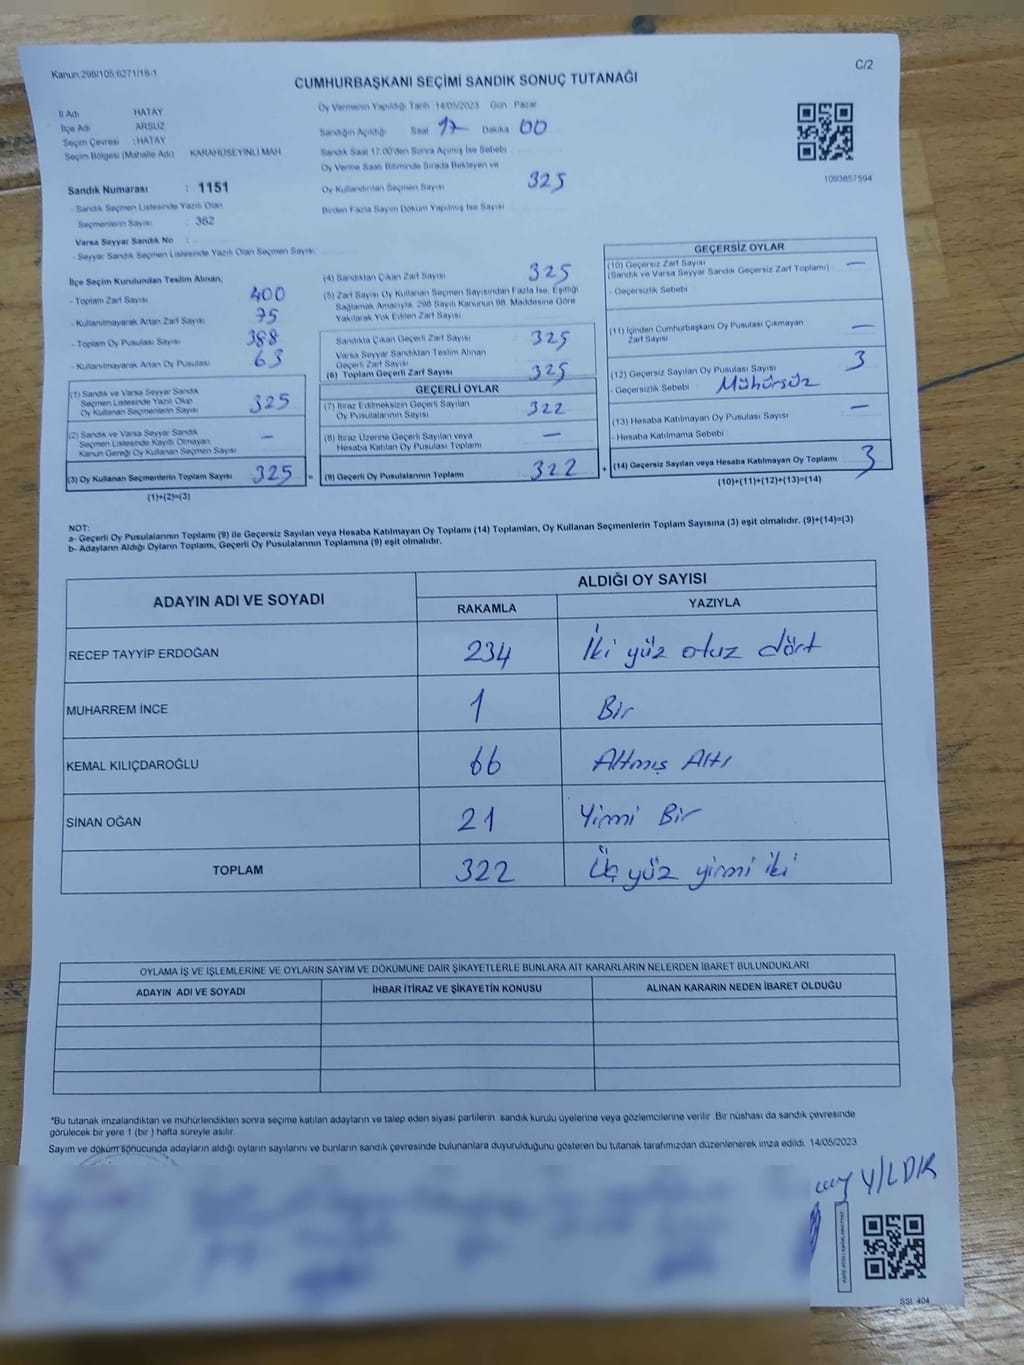 Kanun:298/105;6271/18-1
C/2
CUMHURBAŞKANI SEÇİMİ SANDIK SONUÇ TUTANAĞI
İl Adı HATAY
İlçe Adı ARSUZ
Seçim Çevresi : HATAY
Seçim Bölgesi (Mahalle Adı) KARAHÜSEYİNLİ MAH.
Sandık Numarası : 1151
- Sandık Seçmen Listesinde Yazılı Olan
Seçmenlerin Sayısı : 382
Varsa Seyyar Sandık No :
- Seyyar Sandık Seçmen Listesinde Yazılı Olan Seçmen Sayısı
Oy Vermenin Yapıldığı Tarih 14/05/2023 Gün Pazar
Sandığın Açıldığı Saat 17 Dakika 00
Sandık Saat 17:00'den Sonra Açımış İse Sebebi
Oy Verme Saati Bitiminde Sırada Bekleyen ve
Oy Kullandırılan Seçmen Sayısı 325
Birden Fazla Sayım Döküm Yapılmış İse Sayısı
1093857594
İlçe Seçim Kurulundan Teslim Alınan;
- Toplam Zarf Sayısı 400
- Kullanılmayarak Artan Zarf Sayısı 75
- Toplam Oy Pusulası Sayısı 388
- Kullanılmayarak Artan Oy Pusulası 63
(1) Sandık ve Varsa Seyyar Sandık
Seçmen Listesinde Yazılı Olup
Oy Kullanan Seçmenlerin Sayısı 325
(2) Sandık ve Varsa Seyyar Sandık
Seçmen Listesinde Kayıtlı Olmayan
Kanun Gereği Oy Kullanan Seçmen Sayısı –
(3) Oy Kullanan Seçmenlerin Toplam Sayısı 325 =
(1)+(2)=(3)
(4) Sandıktan Çıkan Zarf Sayısı 325
(5) Zarf Sayısı Oy Kullanan Seçmen Sayısından Fazla İse, Eşitliği
Sağlamak Amacıyla, 298 Sayılı Kanunun 98. Maddesine Göre
Yakılarak Yok Edilen Zarf Sayısı
Sandıkta Çıkan Geçerli Zarf Sayısı 325
Varsa Seyyar Sandıktan Teslim Alınan
Geçerli Zarf Sayısı
(6) Toplam Geçerli Zarf Sayısı 325
GEÇERLİ OYLAR
(7) İtiraz Edilmeksizin Geçerli Sayılan
Oy Pusulalarının Sayısı 322
(8) İtiraz Üzerine Geçerli Sayılan veya
Hesaba Katılan Oy Pusulası Toplamı –
(9) Geçerli Oy Pusulalarının Toplamı 322 +
GEÇERSİZ OYLAR
(10) Geçersiz Zarf Sayısı –
(Sandık ve Varsa Seyyar Sandık Geçersiz Zarf Toplamı)
- Geçersizlik Sebebi
(11) İçinden Cumhurbaşkanı Oy Pusulası Çıkmayan –
Zarf Sayısı
(12) Geçersiz Sayılan Oy Pusulası Sayısı 3
- Geçersizlik Sebebi : Mühürsüz
(13) Hesaba Katılmayan Oy Pusulası Sayısı –
- Hesaba Katılmama Sebebi
(14) Geçersiz Sayılan veya Hesaba Katılmayan Oy Toplamı 3
(10)+(11)+(12)+(13)=(14)
NOT:
a- Geçerli Oy Pusulalarının Toplamı (9) ile Geçersiz Sayılan veya Hesaba Katılmayan Oy Toplamı (14) Toplamları, Oy Kullanan Seçmenlerin Toplam Sayısına (3) eşit olmalıdır. (9)+(14)=(3)
b- Adayların Aldığı Oyların Toplamı, Geçerli Oy Pusulalarının Toplamına (9) eşit olmalıdır.
ADAYIN ADI VE SOYADI
ALDIĞI OY SAYISI
RAKAMLA YAZIYLA
RECEP TAYYİP ERDOĞAN 234 İki yüz otuz dört
MUHARREM İNCE 1 Bir
KEMAL KILIÇDAROĞLU 66 Altmış Altı
SİNAN OĞAN 21 Yirmi Bir
TOPLAM 322 Üç yüz yirmi iki
OYLAMA İŞ VE İŞLEMLERİNE VE OYLARIN SAYIM VE DÖKÜMÜNE DAİR ŞİKAYETLERLE BUNLARA AİT KARARLARIN NELERDEN İBARET BULUNDUKLARI
ADAYIN ADI VE SOYADI İHBAR İTİRAZ VE ŞİKAYETİN KONUSU ALINAN KARARIN NEDEN İBARET OLDUĞU
*Bu tutanak imzalandıktan ve mühürlendikten sonra seçime katılan adayların ve talep eden siyasi partilerin sandık kurulu üyelerine veya gözlemcilerine verilir. Bir nüshası da sandık çevresinde
görülecek bir yere 1 (bir ) hafta süreyle asılır.
Sayım ve döküm sonucunda adayların aldığı oyların sayılarını ve bunların sandık çevresinde bulunanlara duyurulduğunu gösteren bu tutanak tarafımızdan düzenlenerek imza edildi. 14/05/2023
YILDIR
SSI: 404